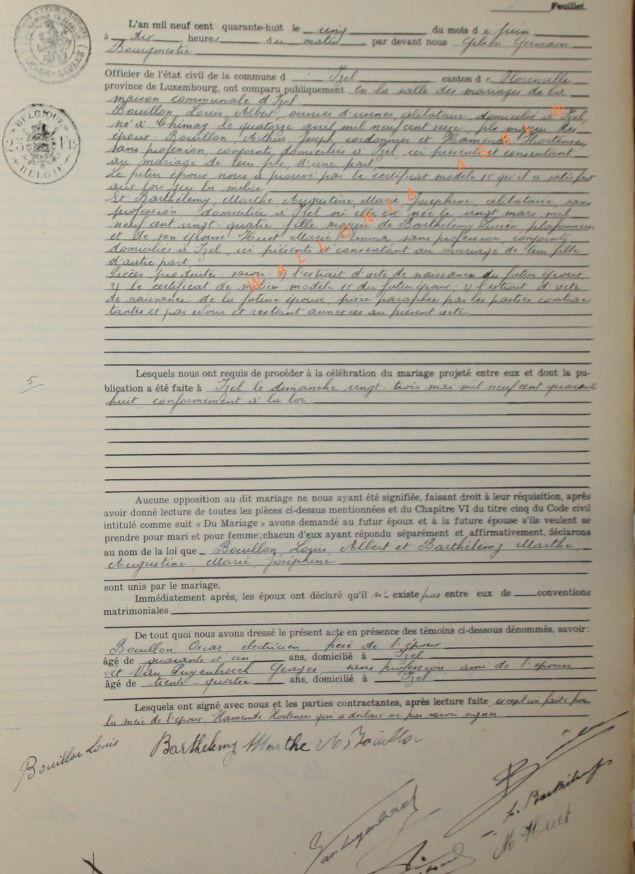 Feuillet.
L'an mil neuf cent quarante-huit le cinq du mois de juin
à dix heures du matin par devant nous Gilson Germain
Bourgmestre
Officier de l'état civil de la commune d'Izel canton de Florenville
province de Luxembourg, ont comparu publiquement en la salle des mariages de la
maison communale d'Izel
Bouillon, Louis, Albert, ouvrier d'usines célibataire, domicilié à Izel,
né à Chimay le quatorze avril mil neuf cent seize, fils majeur des
époux: Bouillon Arthur Joseph cordonnier et Hortense,
sans profession, conjoints, domiciliés à Izel, ici présents et consentant
au mariage de leur fils, d'une part
Le futur époux nous a prouvé par le certificat modèle 15 qu'il a satisfait
aux lois sur la milice
Et Barthélemy, Marthe Augustine Marie, Joséphine, célibataire, sans
profession domiciliée à Izel où elle est née le vingt mars mil
neuf cent vingt quatre fille majeure de Barthélemy Lucien, plafonneur
et de son épouse Huet Marie sans profession conjoints
domiciliés à Izel, ici présents et consentant au mariage de leur fille
d'autre part.
Pièces produites savoir: 1) l'extrait d'acte de naissance du futur époux
2) le certificat de milice modèle 15 du futur époux; 3) l'extrait d'acte
de naissance de la future épouse, pièces paraphées par les parties contrac
tantes et par Nous et restant annexées au présent acte
WALLONIA ASBL
BELGIQUE
BELGIE
Lesquels nous ont requis de procéder à la célébration du mariage projeté entre eux et dont la pu-
blication a été faite à Izel le dimanche vingt trois mai mil neuf cent quarante
huit conformément à la loi
5
Aucune opposition au dit mariage ne nous ayant été signifiée, faisant droit à leur réquisition, après
avoir donné lecture de toutes les pièces ci-dessus mentionnées et du Chapitre VI du titre cinq du Code civil
intitulé comme suit « Du Mariage » avons demandé au futur époux et à la future épouse s'ils veulent se
prendre pour mari et pour femme; chacun d'eux ayant répondu séparément et affirmativement, déclarons
au nom de la loi que Bouillon, Louis, Albert et Barthélemy Marthe
Augustine Marie, Joséphine
sont unis par le mariage.
Immédiatement après, les époux ont déclaré qu'il n'existe pas entre eux de conventions
matrimoniales
De tout quoi nous avons dressé le présent acte en présence des témoins ci-dessous dénommés, savoir:
Bouillon Oscar, électricien frère de l'époux
âgé de quarante et un ans, domicilié à Izel
et Van Georges, sans profession, ami de l'épouse
âgé de trente quatre ans, domicilié à Izel
Lesquels ont signé avec nous et les parties contractantes, après lecture faite excepté
la mère de l'époux, Hortense qui a déclaré ne pas savoir signer
Bouillon Louis Barthélemy Marthe Bouillon
L. Barthélemy
M Huet